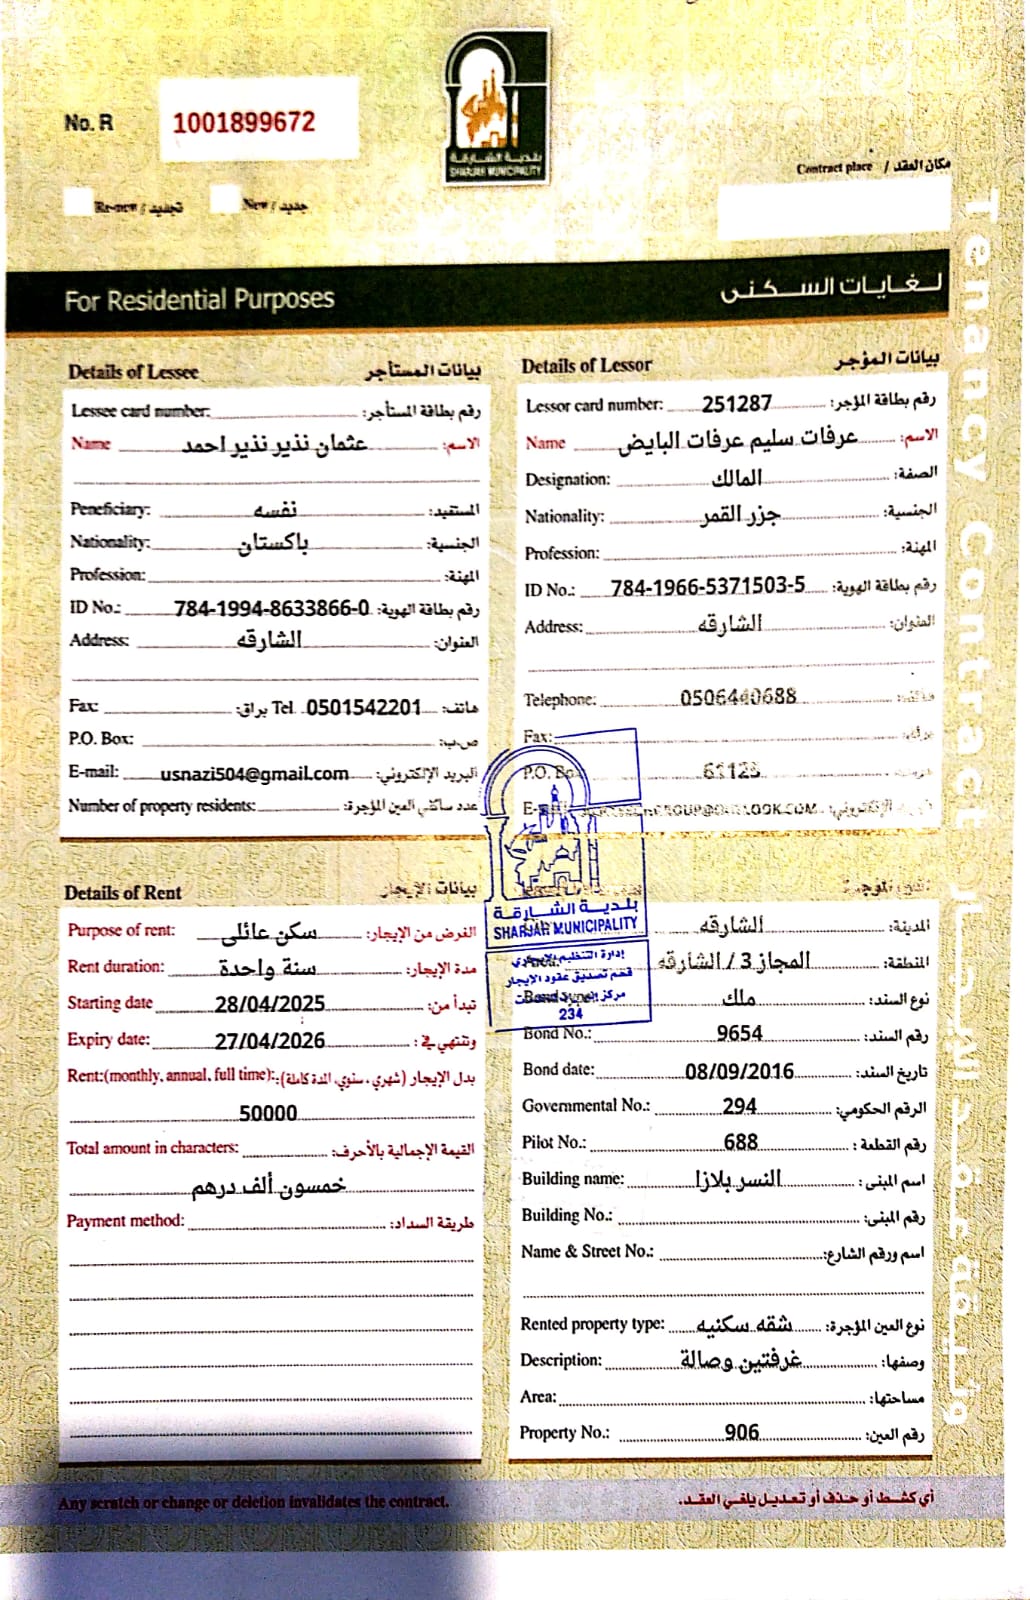 بلدية الشارقة
SHARJAH MUNICIPALITY
No. R 1001899672
Contract place / مكان العقد
Re-new / تجديد New / جديد
For Residential Purposes لغايات السكنى
Tenancy Contract
Details of Lessee بيانات المستأجر
Lessee card number: رقم بطاقة المستأجر:
Name عثمان نذير نذير احمد الاسم:
Peneficiary: نفسه المستفيد:
Nationality: باكستان الجنسية:
Profession: المهنة:
ID No.: 784-1994-8633866-0 رقم بطاقة الهوية:
Address: الشارقه العنوان:
Fax: براق: Tel 0501542201 هاتف:
P.O. Box: ص.ب:
E-mail: usnazi504@gmail.com البريد الإلكتروني:
Number of property residents: عدد ساكني العين المؤجرة:
Details of Lessor بيانات المؤجر
Lessor card number: 251287 رقم بطاقة المؤجر:
Name عرفات سليم عرفات البايض الاسم:
Designation: المالك الصفة:
Nationality: جزر القمر الجنسية:
Profession: المهنة:
ID No.: 784-1966-5371503-5 رقم بطاقة الهوية:
Address: الشارقه العنوان:
Telephone: 0506440688
Fax:
P.O. Box
E-mail
بلدية الشارقة
SHARJAH MUNICIPALITY
إدارة التنظيم الإيجاري
قسم تصديق عقود الإيجار
مركز
234
Details of Rent بيانات الإيجار
Purpose of rent: سكن عائلى الغرض من الإيجار:
Rent duration: سنة واحدة مدة الإيجار:
Starting date 28/04/2025 تبدأ من:
Expiry date: 27/04/2026 وتنتهي في:
Rent:(monthly, annual, full time): بدل الإيجار (شهري، سنوي، المدة كاملة):
50000
Total amount in characters: القيمة الإجمالية بالأحرف:
خمسون ألف درهم
Payment method: طريقة السداد:
الشارقه المدينة:
المجاز 3 / الشارقه المنطقة:
ملك نوع السند:
Bond No.: 9654 رقم السند:
Bond date: 08/09/2016 تاريخ السند:
Governmental No.: 294 الرقم الحكومي:
Pilot No.: 688 رقم القطعة:
Building name: النسر بلازا اسم المبنى:
Building No.: رقم المبنى:
Name & Street No.: اسم ورقم الشارع:
Rented property type: شقه سكنيه نوع العين المؤجرة:
Description: غرفتين وصالة وصفها:
Area: مساحتها:
Property No.: 906 رقم العين:
Any scratch or change or deletion invalidates the contract. أي كشط أو حذف أو تعديل يلغي العقد.